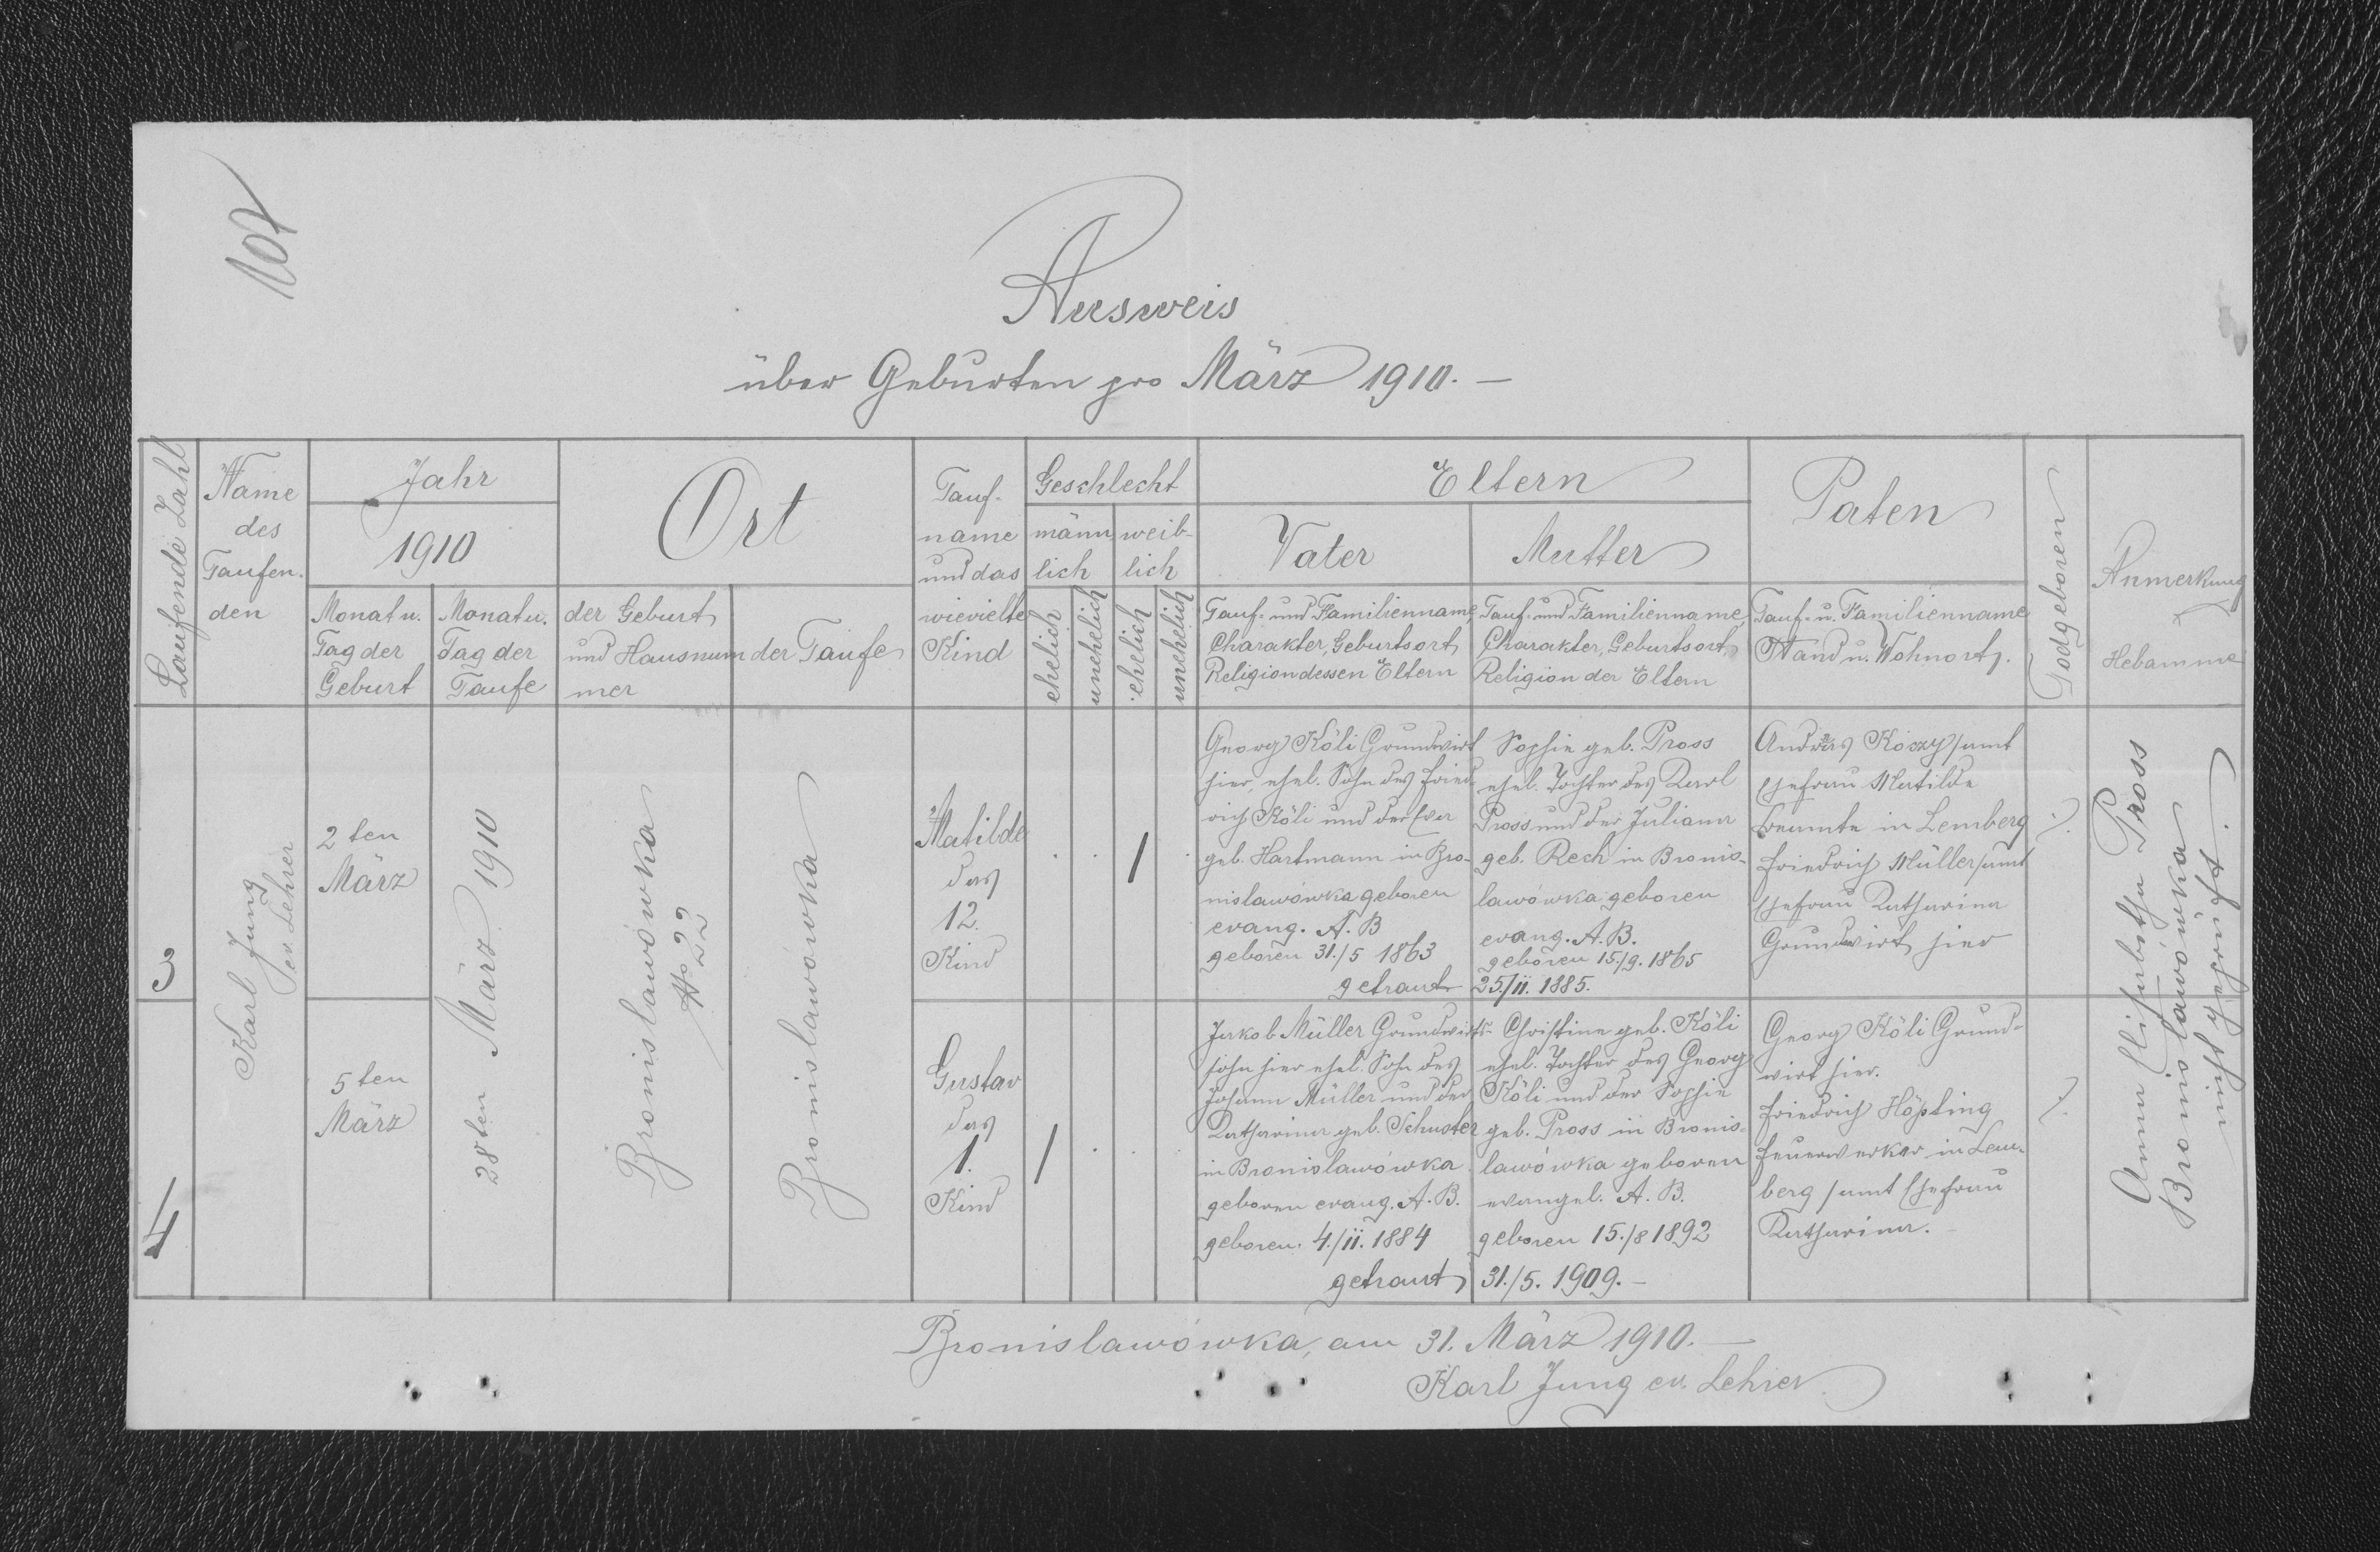 102
Ausweis
über Geburten pro März 1910. –
Laufende Zahl
Name
des
Taufen-
den
Jahr
1910
Monat u.
Tag der
Geburt
Monat u.
Tag der
Taufe
Ort
der Geburt
und Hausnum
mer
der Taufe
Tauf-
name
und das
wievielte
Kind
Geschlecht
männ-
lich
weib-
lich
ehelich
unehelich
ehelich
unehelich
Eltern
Vater
Tauf- und Familienname,
Charakter, Geburtsort
Religion dessen Eltern
Mutter
Tauf- und Familienname,
Charakter, Geburtsort,
Religion der Eltern
Paten
Tauf- u. Familienname
Stand u. Wohnort.
Todgeboren
Anmerkung
Hebamme
3
Karl Jung
ev. Lehrer
2 ten
März
28ten März 1910
Bronislawówka
No 22
Bronislawówka
Matilde
das
12.
Kind
1
Georg Köli Grundwirt
hier, ehel. Sohn des Fried-
rich Köli und der Eva
geb. Hartmann in Bro-
nislawówka geboren
evang. A. B
geboren 31./5 1863
getraut
Sophie geb. Pross
ehel. Tochter des Karl
Pross und der Juliana
geb. Rech in Bronis-
lawówka geboren
evang. A. B.
geboren 15./9. 1865
25./11. 1885.
Andreas Koszy samt
Ehefrau Matilde
Beamte in Lemberg
Friedrich Müller samt
Ehefrau Katharina
Grundwirt hier
./.
Anna Elisabetha Pross
Bronislawówka
nicht geprüft.
4
5 ten
März
Gustav
das
1.
Kind
1
Jakob Müller Grundwirts-
sohn hier ehel. Sohn des
Johann Müller und der
Katharina geb. Schuster
in Bronislawówka
geboren evang. A. B.
geboren. 4./11. 1884
getraut
Christine geb. Köli
ehel. Tochter des Georg
Köli und der Sophie
geb. Pross in Bronis-
lawówka geboren
evangel. A. B.
geboren 15./8 1892
31./5. 1909. –
Georg Köli Grund-
wirt hier.
Friedrich Höpting
Feuerwerker in Lem-
berg samt Ehefrau
Katharina. –
./.
Bronislawówka, am 31. März 1910. –
Karl Jung ev. Lehrer.